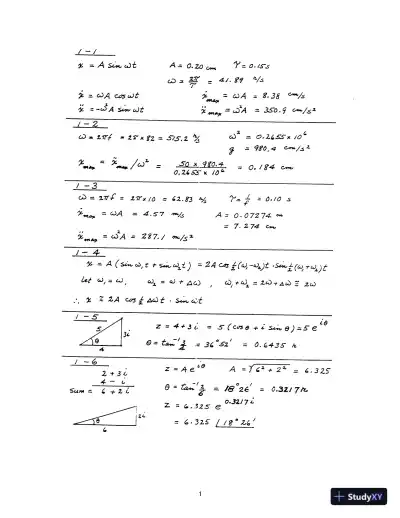 1-1
x = A sin ωt    A = 0.20 cm    τ = 0.15s
ω = 2π/τ = 41.89 r/s
ẋ = ωA cos ωt    ẋmax = ωA = 8.38 cm/s
ẍ = -ω²A sin ωt    ẍmax = ω²A = 350.9 cm/s²
1-2
ω = 2πf = 2π×82 = 515.2 r/s    ω² = 0.2655×10⁶
g = 980.4 cm/s²
xmax = ẍmax/ω² = 50 × 980.4 / 0.2655 × 10⁶ = 0.184 cm
1-3
ω = 2πf = 2π×10 = 62.83 r/s    τ = 1/f = 0.10 s
ẋmax = ωA = 4.57 m/s    A = 0.07274 m
= 7.274 cm
ẍmax = ω²A = 287.1 m/s²
1-4
x = A (sin ω₁t + sin ω₂t) = 2A cos ½(ω₁-ω₂)t · sin ½(ω₁+ω₂)t
let ω₁ = ω,    ω₂ = ω + Δω    ω₁+ω₂ = 2ω+Δω ≅ 2ω
∴ x ≅ 2A cos ½Δωt · sin ωt
1-5
5    3i    θ    4
z = 4+3i = 5(cos θ + i sin θ) = 5e^iθ
θ = tan⁻¹ 3/4 = 36°52' = 0.6435 r
1-6
2 + 3i    z = Ae^iθ    A = √6² + 2² = 6.325
4 - i
sum = 6 + 2i    θ = tan⁻¹ 2/6 = 18°26' = 0.3217 r
z = 6.325 e^0.3217i
2i    θ    6
= 6.325 ∠18°26'
1
StudyXY